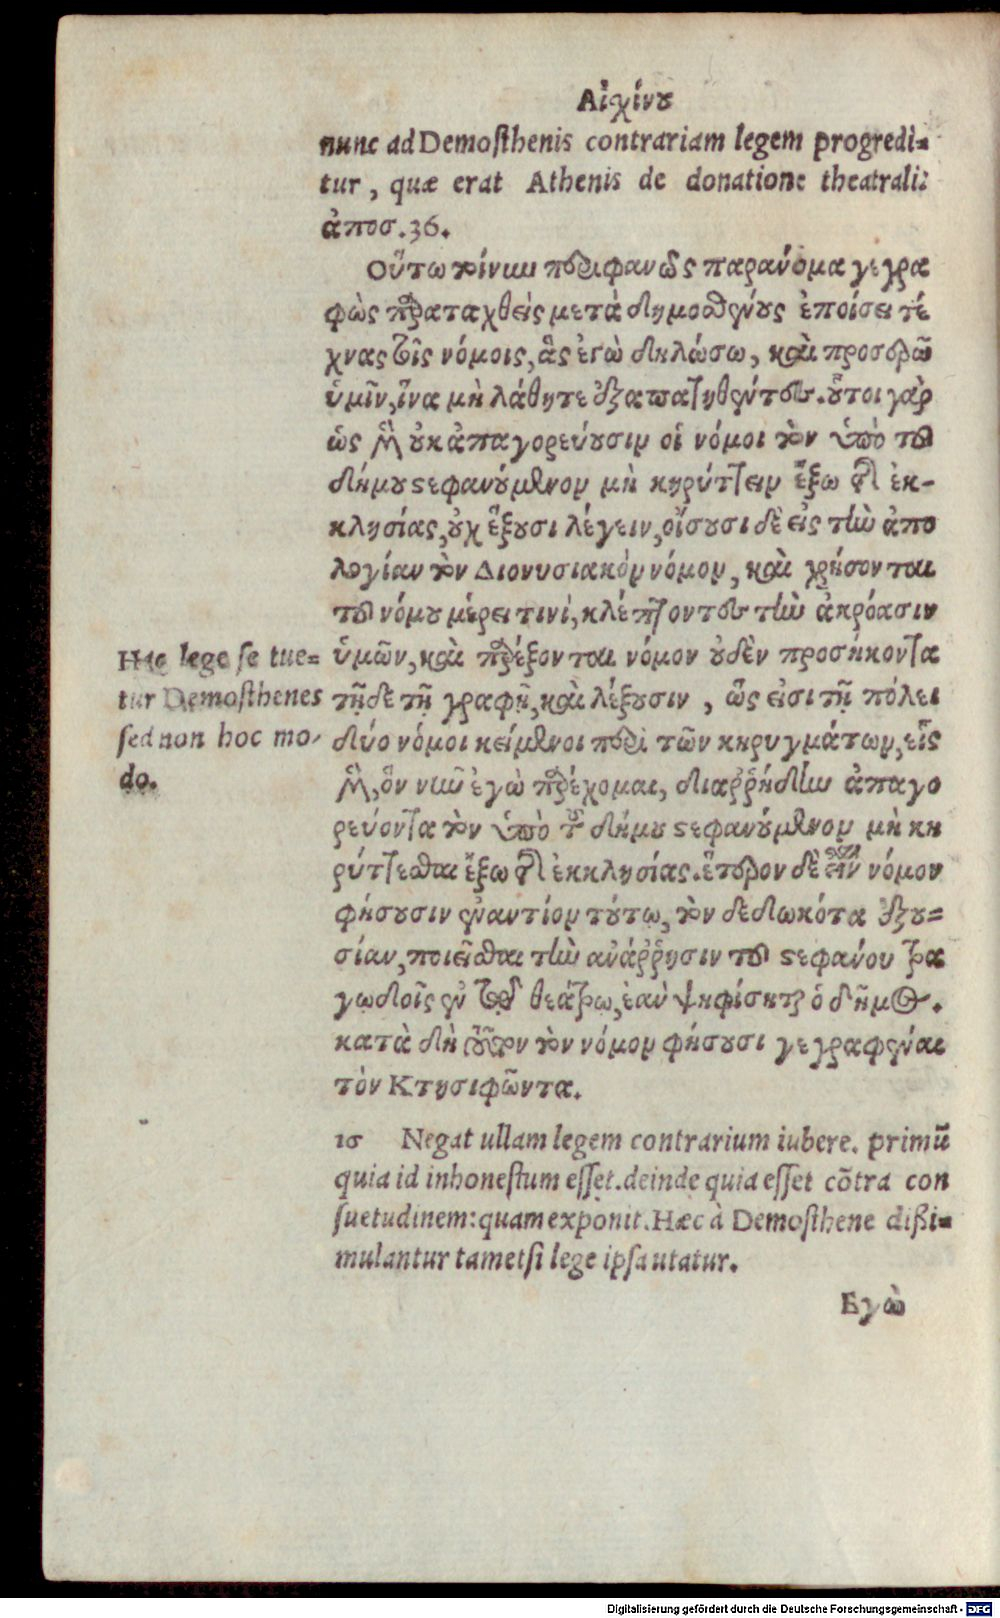 Αἰχίνου
nunc ad Demosthenis contrariam legem progredi=
tur, quæ erat Athenis de donatione theatrali:
ἀποσ.36.
Οὕτω τοίνυν περιφανῶς παράνομα γεγρα
φὼς παραταχθεὶς μετὰ δημοσθένους ἐποίσει τέ
χνας τοῖς νόμοις, ἃς ἐγὼ δηλώσω, καὶ προσερῶ
ὑμῖν, ἵνα μὴ λάθητε ἐξαπατηθέντες. οὗτοι γὰρ
ὡς μὲν οὐκ ἀπαγορεύουσιν οἱ νόμοι τὸν ὑπὸ τοῦ
δήμου στεφανούμενον μὴ κηρύττειν ἔξω τῆς ἐκ-
κλησίας, οὐχ ἕξουσι λέγειν, οἴσουσι δὲ εἰς τὴν ἀπο
λογίαν τὸν Διονυσιακὸν νόμον, καὶ χρήσονται
τοῦ νόμου μέρει τινὶ, κλέπτοντες τὴν ἀκρόασιν
ὑμῶν, καὶ παρέξονται νόμον οὐδὲν προσήκοντα
τῇδε τῇ γραφῇ, καὶ λέξουσιν, ὥς εἰσι τῇ πόλει
δύο νόμοι κείμενοι περὶ τῶν κηρυγμάτων, εἷς
μὲν, ὃν νῦν ἐγὼ παρέχομαι, διαῤῥήδην ἀπαγο
ρεύοντα τὸν ὑπὸ τοῦ δήμου στεφανούμενον μὴ κη
ρύττεσθαι ἔξω τῆς ἐκκλησίας. ἕτερον δὲ εἶναι νόμον
φήσουσιν ἐναντίον τούτω, τὸν δεδωκότα ἐξου=
σίαν, ποιεῖσθαι τὴν ἀνάῤῥησιν τοῦ στεφάνου τρα
γῳδοῖς ἐν τῷ θεάτρῳ, ἐὰν ψηφίσηται ὁ δῆμος.
κατὰ δὴ τοῦτον τὸν νόμον φήσουσι γεγραφέναι
τὸν Κτησιφῶντα.
Hac lege se tue=
tur Demosthenes
sed non hoc mo-
do.
10 Negat ullam legem contrarium iubere. primū
quia id inhonestum esset. deinde quia esset cōtra con
suetudinem: quam exponit. Hæc à Demosthene dißi=
mulantur tametsi lege ipsa utatur.
Εγὼ
Digitalisierung gefördert durch die Deutsche Forschungsgemeinschaft - DFG